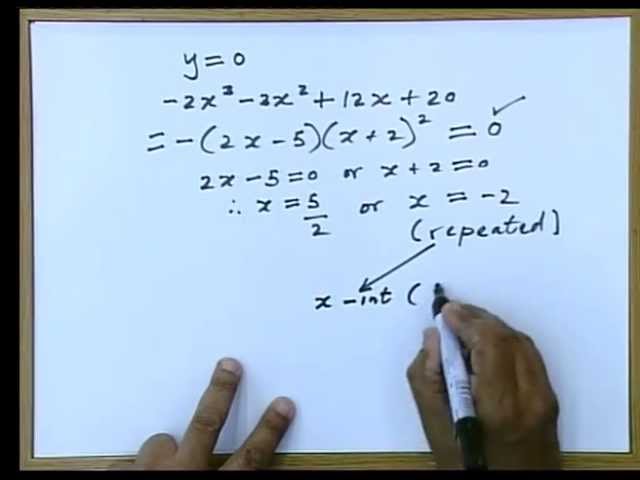 y = 0
-2x³ - 3x² + 12x + 20
= -(2x - 5)(x + 2)² = 0 ✓
2x - 5 = 0 or x + 2 = 0
∴ x = 5/2 or x = -2
(repeated)
x - int (